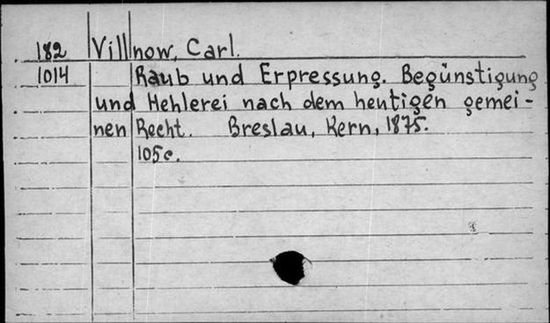 182 Villnow, Carl.
1014 Raub und Erpressung. Begünstigung
und Hehlerei nach dem heutigen gemei-
nen Recht. Breslau, Kern, 1875.